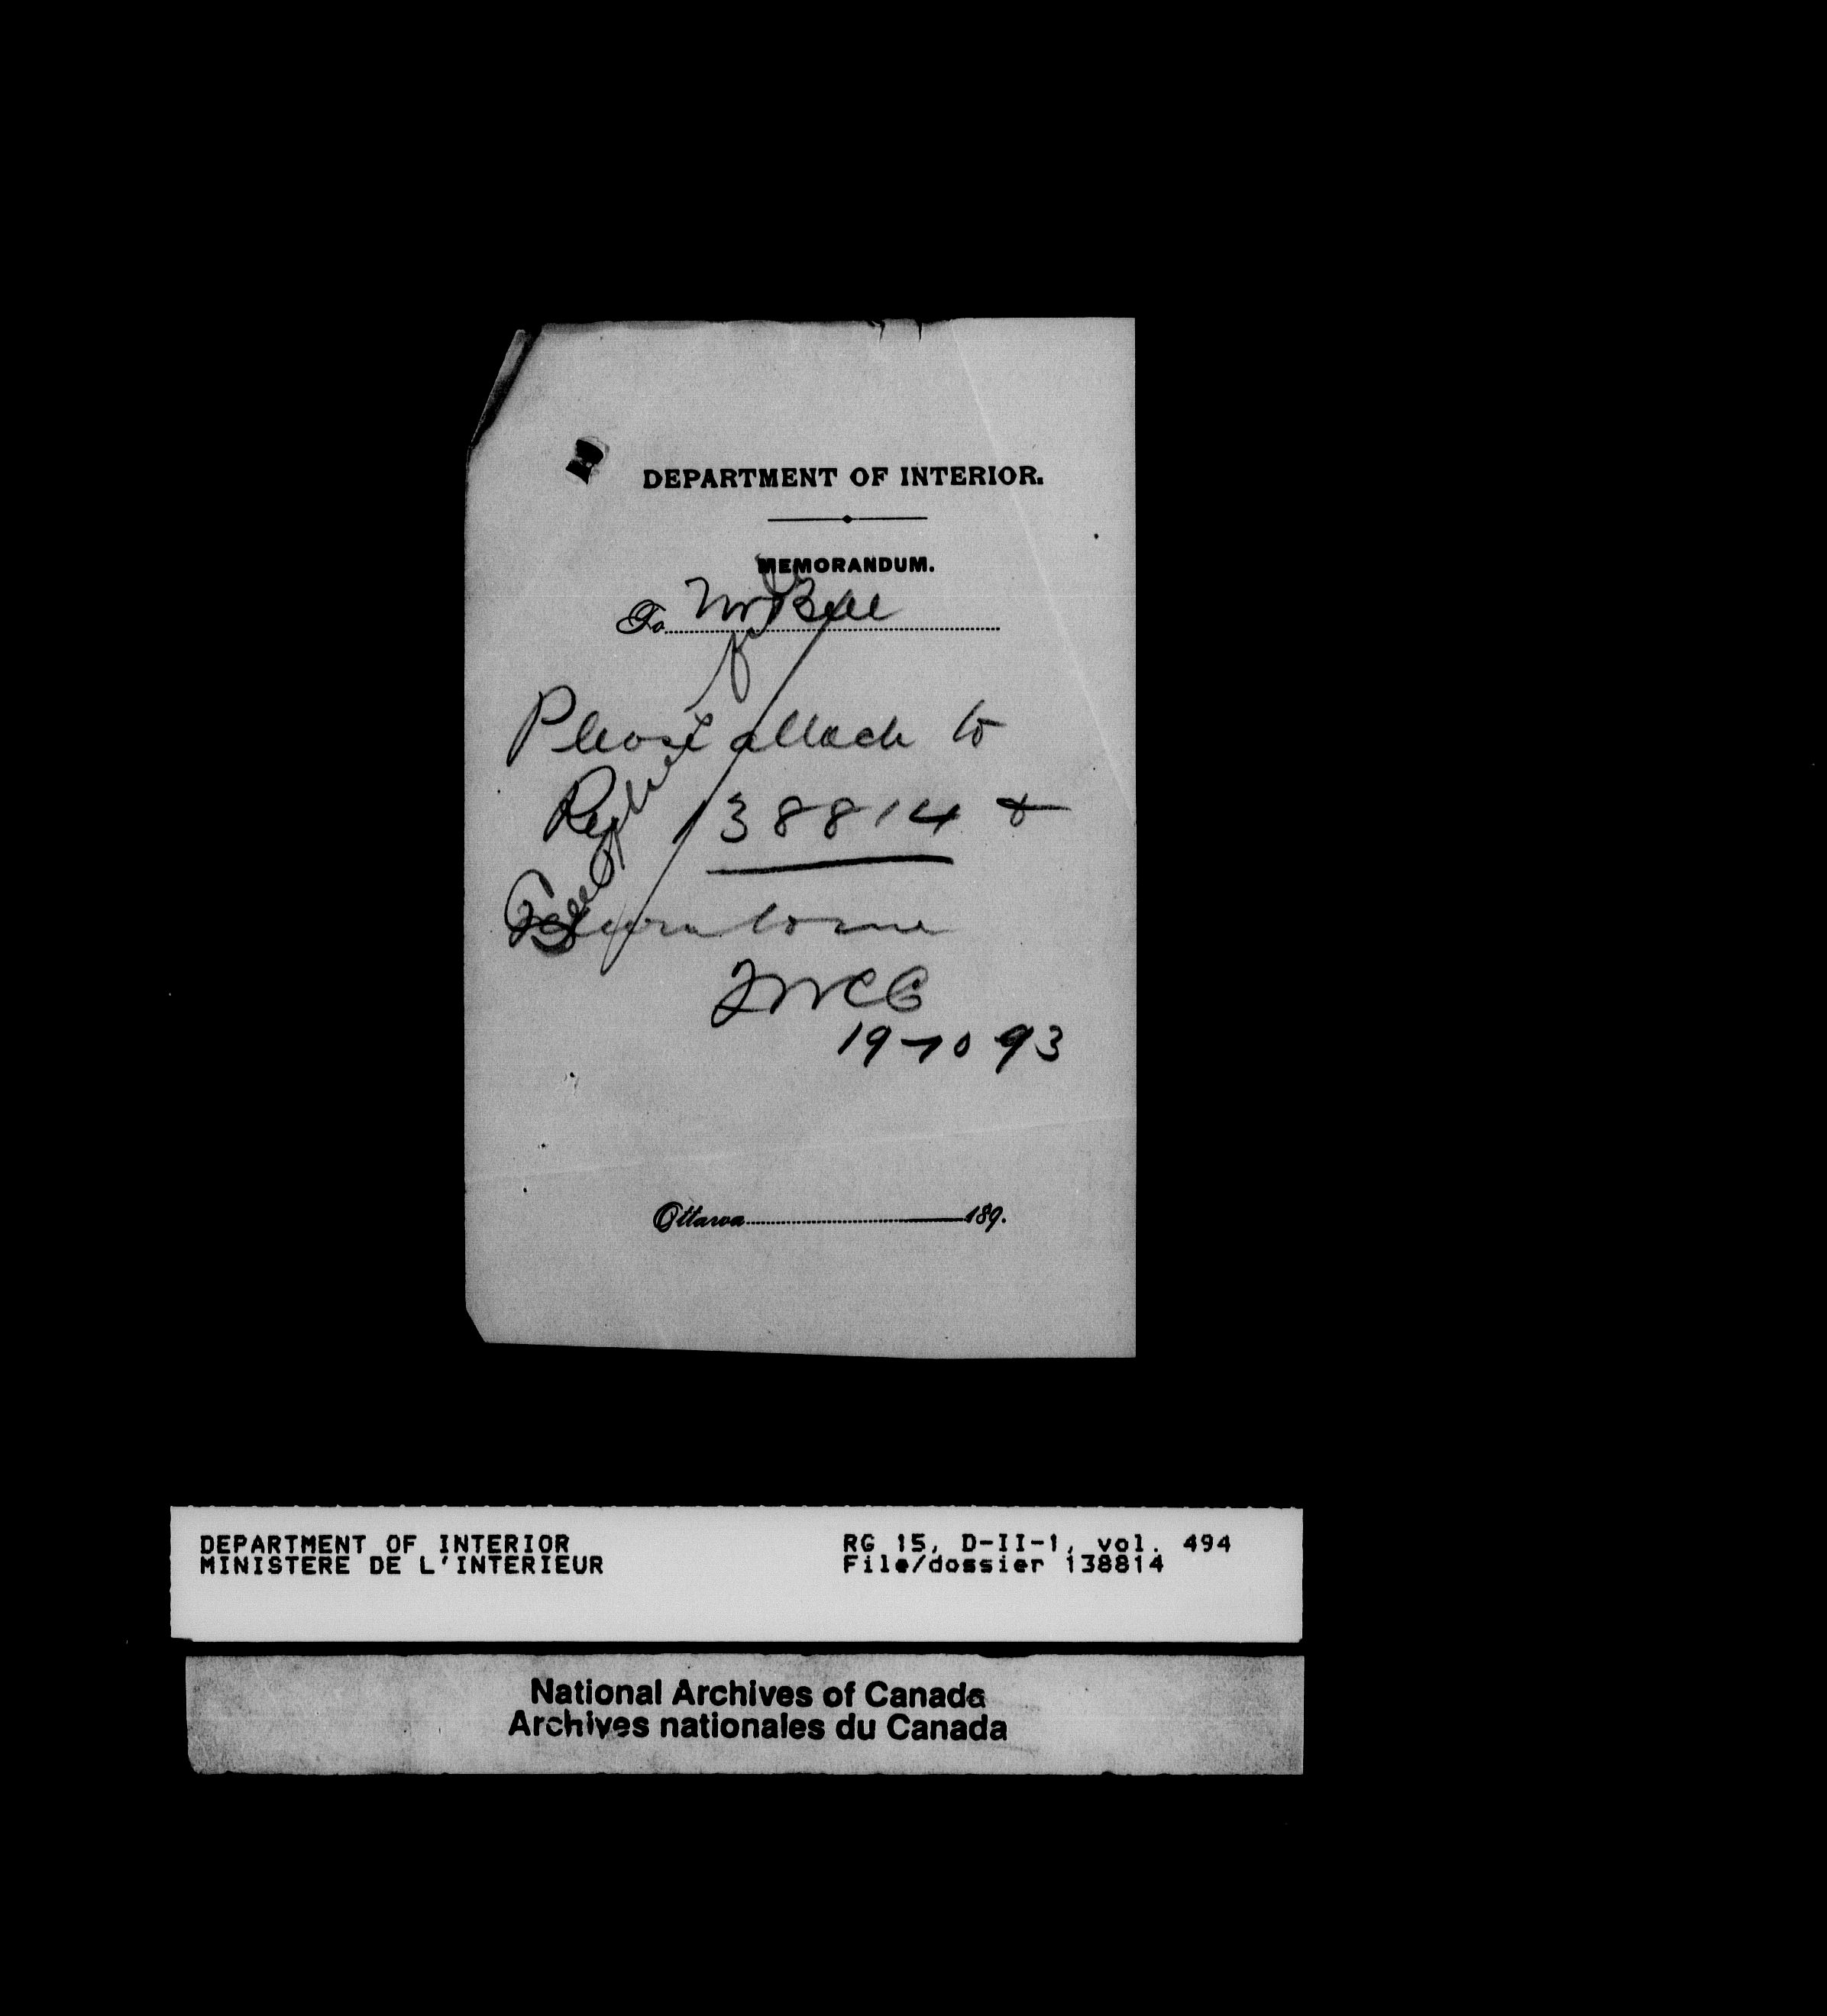 DEPARTMENT OF INTERIOR.
MEMORANDUM.
To Mr Bell
Please attach to
138814 &
return to me
19-10 93
Ottawa 189.
DEPARTMENT OF INTERIOR
MINISTERE DE L'INTERIEUR
RG 15, D-II-1, vol. 494
File/dossier 138814
National Archives of Canada
Archives nationales du Canada